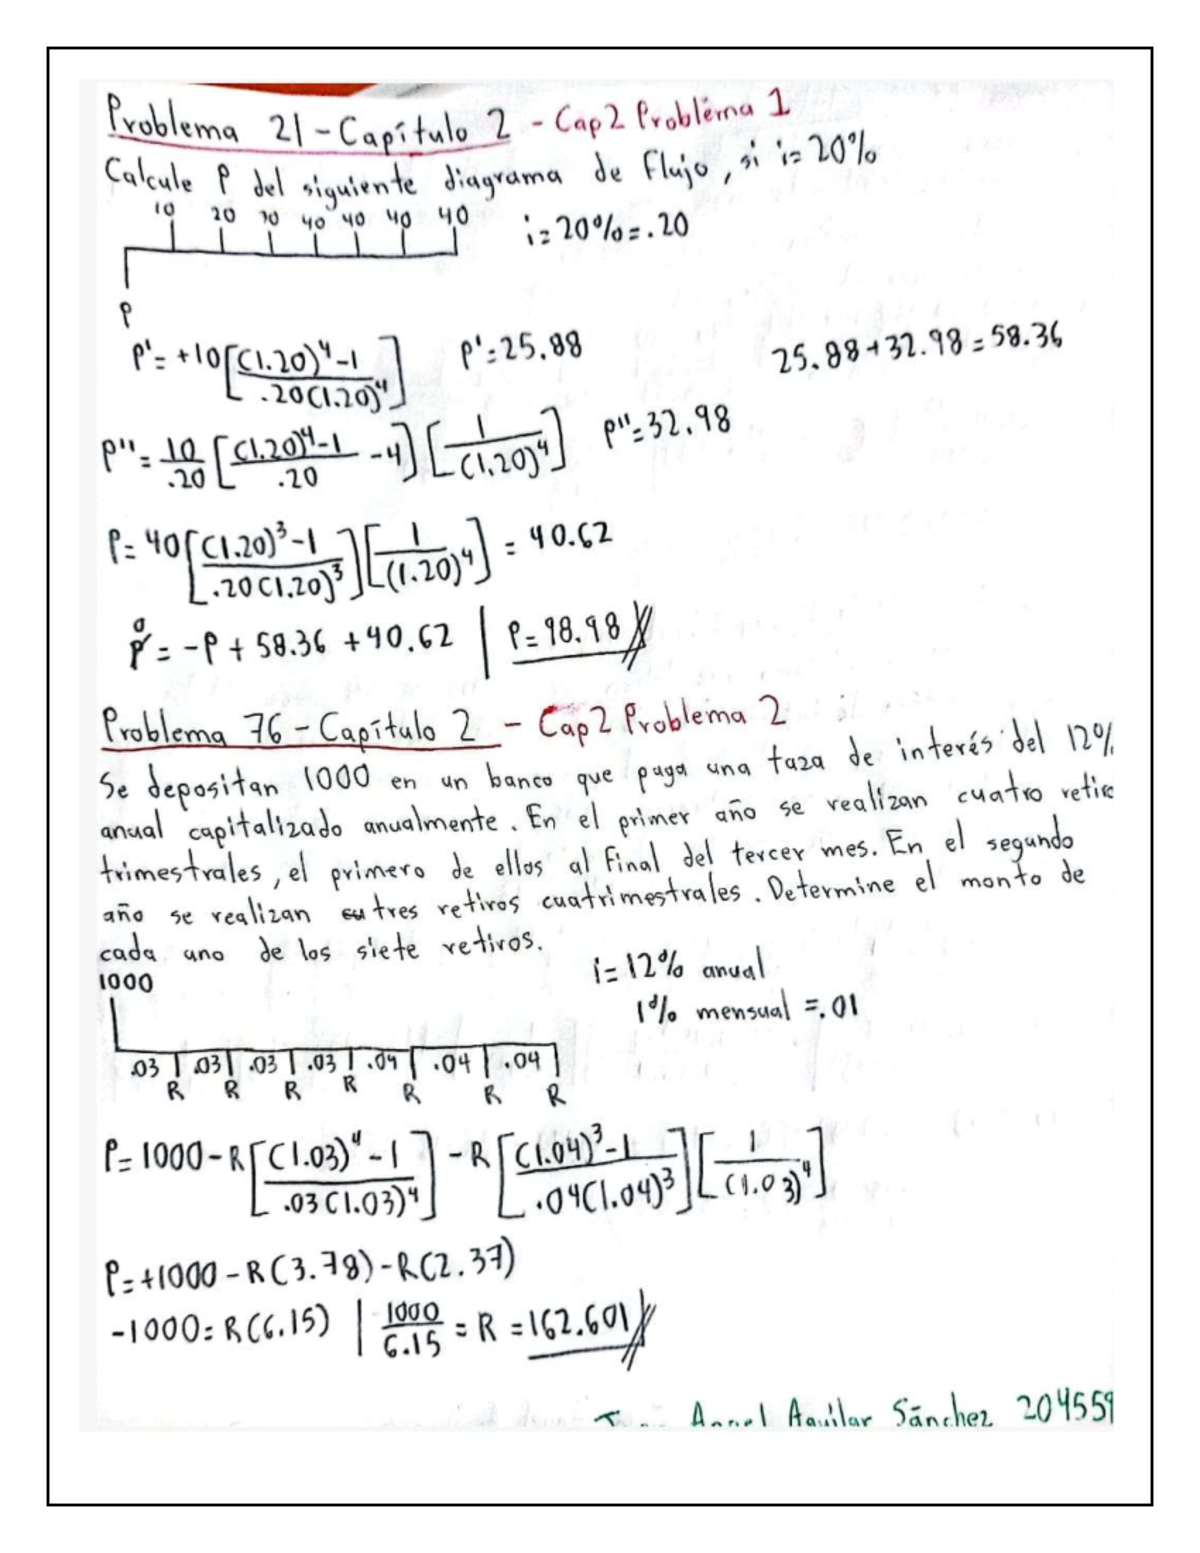 Problema 21 - Capítulo 2 - Cap2 Problema 1
Calcule P del siguiente diagrama de Flujo, si i=20%
10 20 30 40 40 40 40
i=20%=.20
P
P'= +10[(1.20)^4-1 / .20(1.20)^4] P'=25.88
25.88+32.98=58.36
P''= 10/.20 [(1.20)^4-1 / .20 -4][1 / (1.20)^4] P''=32.98
P= 40[(1.20)^3-1 / .20(1.20)^3][1 / (1.20)^4] = 40.62
= -P + 58.36 + 40.62 | P=98.98
Problema 76 - Capítulo 2 - Cap2 Problema 2
Se depositan 1000 en un banco que paga una taza de interés del 12%
anual capitalizado anualmente. En el primer año se realizan cuatro retiro
trimestrales, el primero de ellos al final del tercer mes. En el segundo
año se realizan tres retiros cuatrimestrales. Determine el monto de
cada uno de los siete retiros.
1000
i=12% anual
1% mensual =.01
.03 .03 .03 .03 .04 .04 .04
R R R R R R R
P= 1000-R[(1.03)^4-1 / .03(1.03)^4] -R[(1.04)^3-1 / .04(1.04)^3][1 / (1.03)^4]
P=+1000-R(3.78)-R(2.37)
-1000=R(6.15) | 1000/6.15 = R =162.601
Angel Aguilar Sánchez 204559